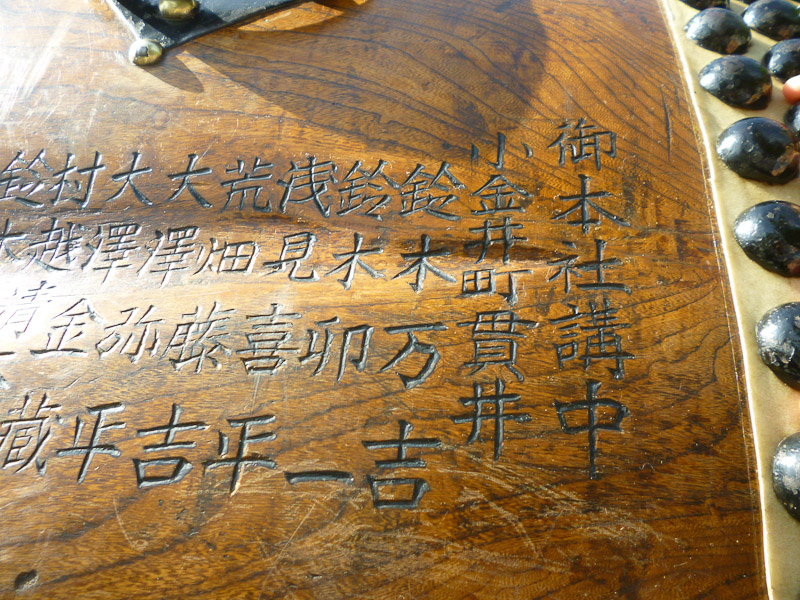 御本社講中
小金井町貫井
鈴木万吉
鈴木卯一
浅見喜平
荒畑藤吉
大澤弥平
大澤金蔵
村越清
鈴木